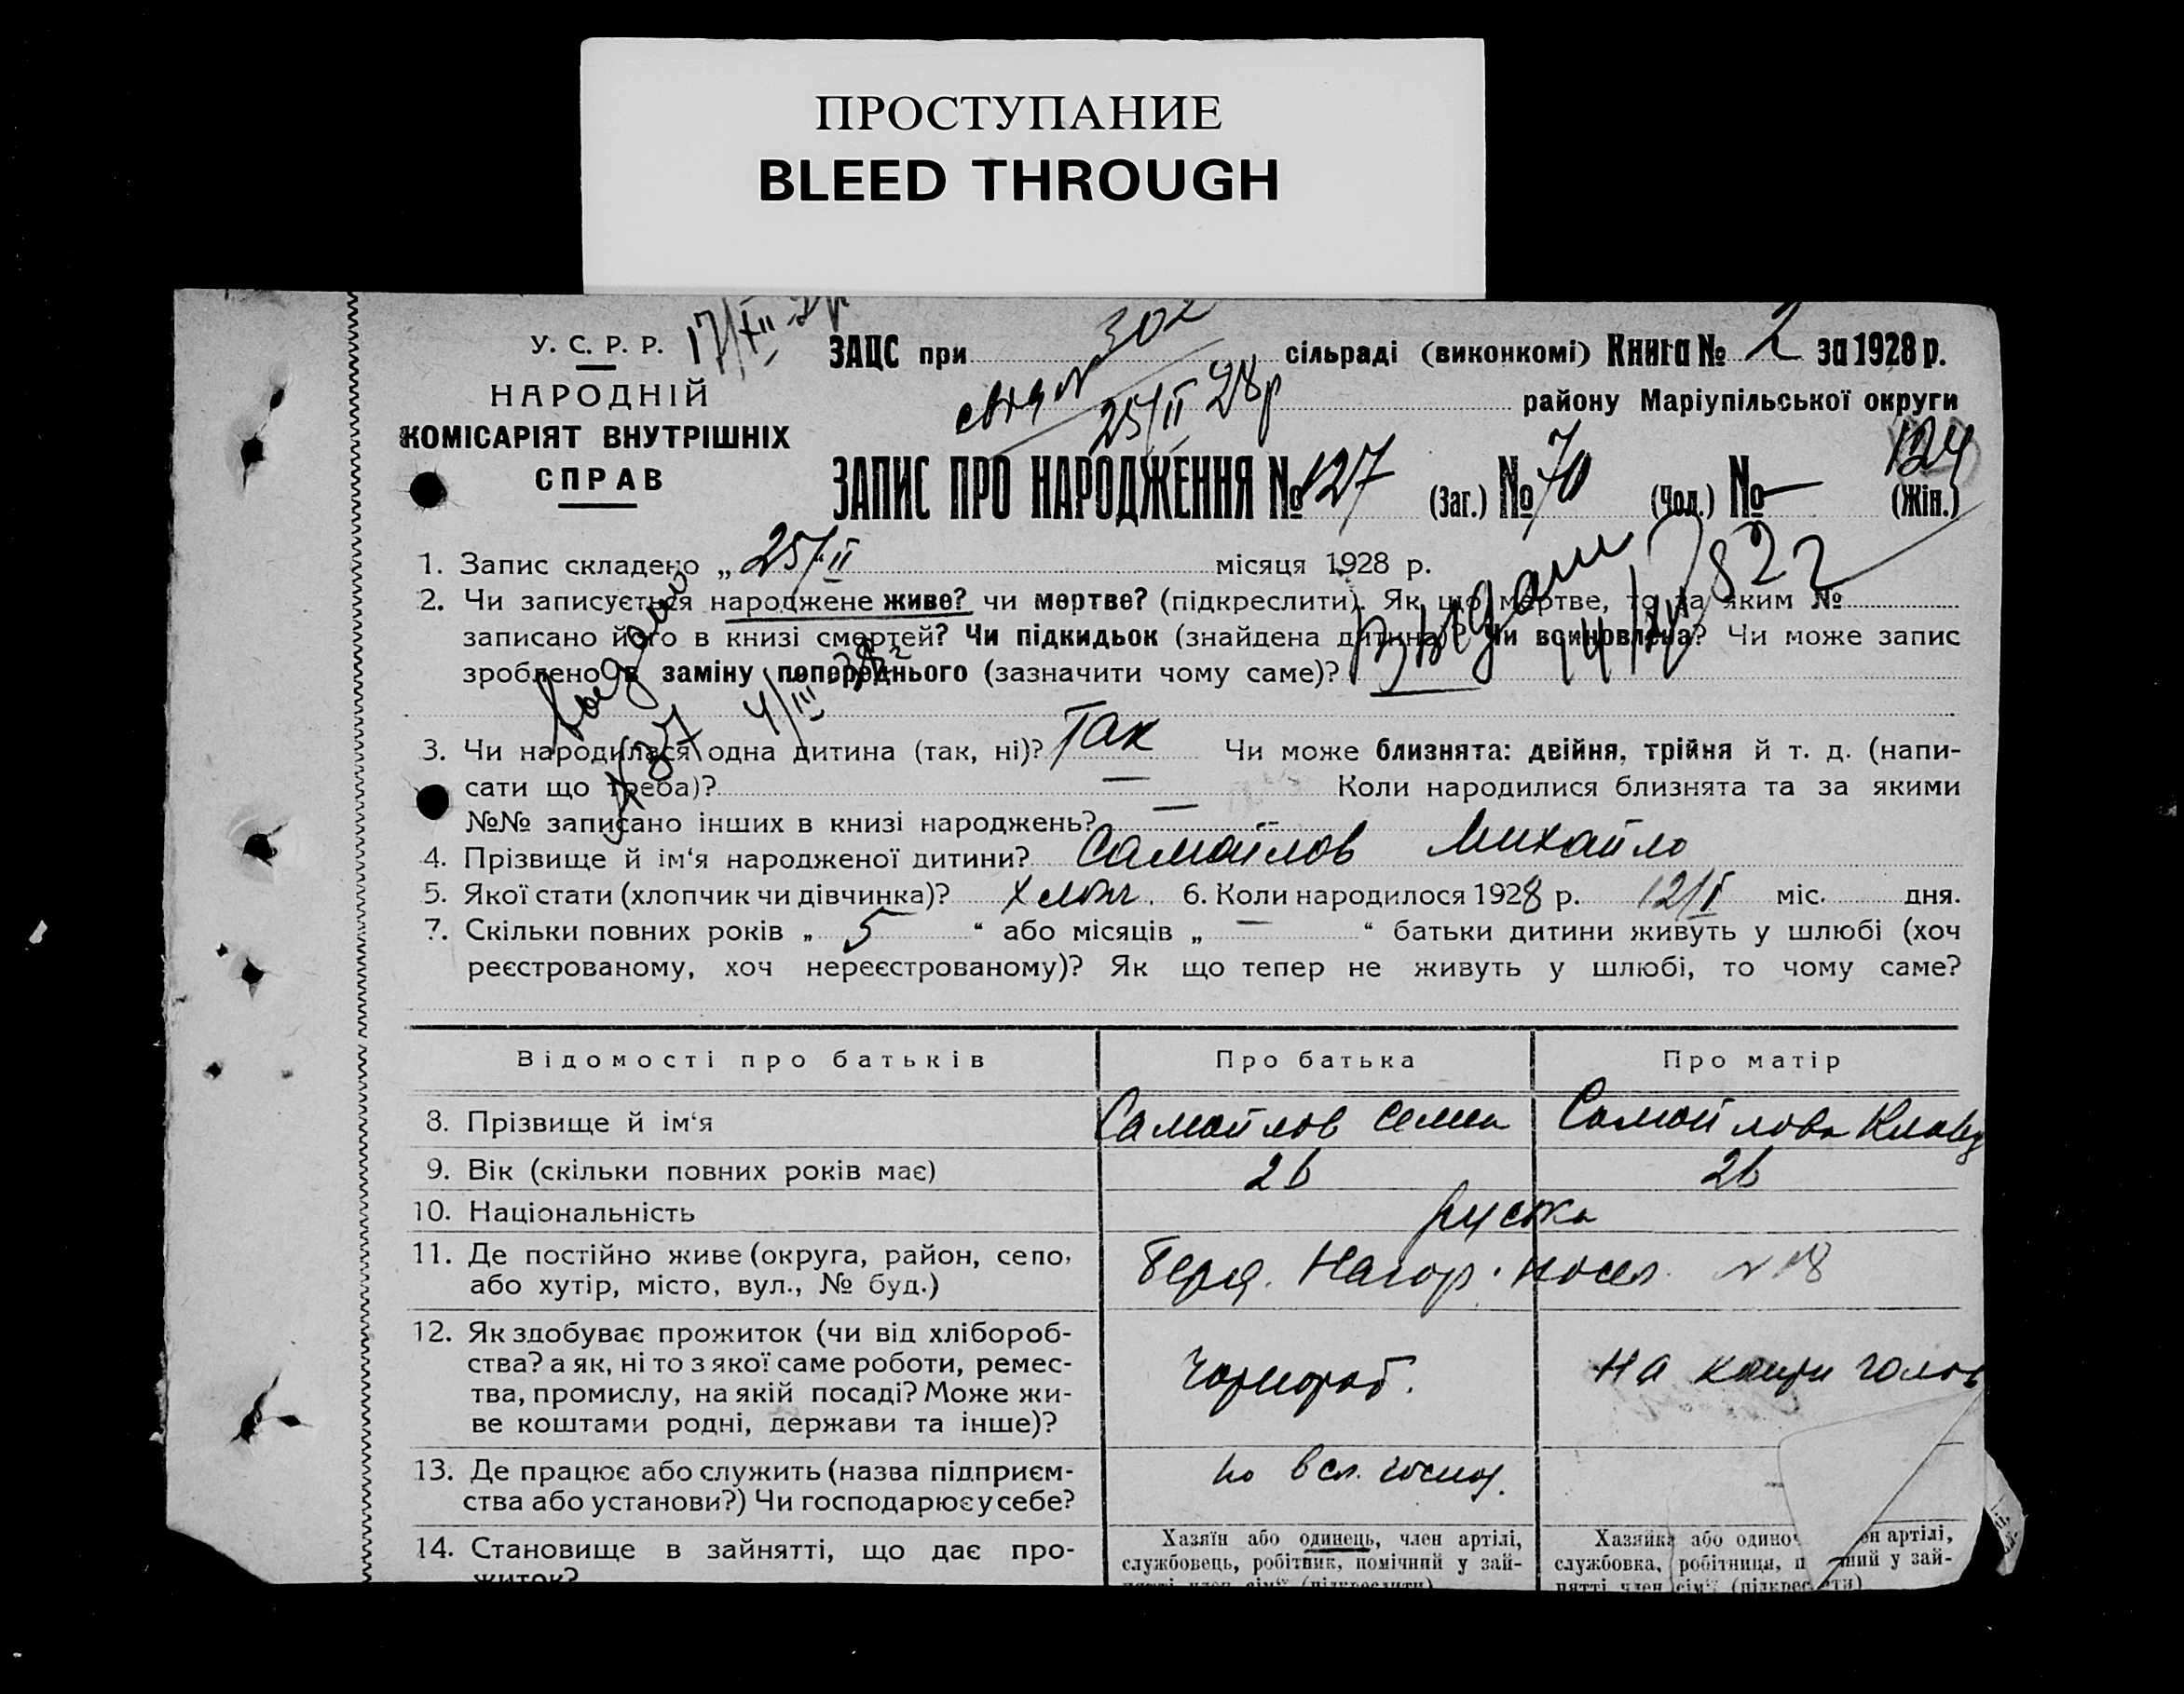 ПРОСТУПАНИЕ
BLEED THROUGH
У. С. Р. Р.
НАРОДНІЙ
КОМІСАРІЯТ ВНУТРІШНІХ
СПРАВ
17/XII
ЗАЦС при 302 сільраді (виконкомі) Книга № 2 за 1928 р.
25/II 28р району Маріупільської округи
124
ЗАПИС ПРО НАРОДЖЕННЯ № 127 (Заг.) № 70 (Чол.) № — (Жін.)
1. Запис складено „ 25/II місяця 1928 р.
2. Чи записується народжене живе? чи мертве? (підкреслити). Як що мертве, то за яким №
записано його в книзі смертей? Чи підкидьок (знайдена дитина)? Чи всиновлена? Чи може запис
зроблено в заміну попереднього (зазначити чому саме)?
3. Чи народилася одна дитина (так, ні)? Так Чи може близнята: двійня, трійня й т. д. (напи-
сати що треба)? — Коли народилися близнята та за якими
№№ записано інших в книзі народжень? —
4. Прізвище й ім‘я народженої дитини? Самойлов Михайло
5. Якої стати (хлопчик чи дівчинка)? хлопч. 6. Коли народилося 1928 р. 12/I міс. дня.
7. Скільки повних років „ 5 “ або місяців „ — “ батьки дитини живуть у шлюбі (хоч
реєстрованому, хоч нереєстрованому)? Як що тепер не живуть у шлюбі, то чому саме?
Відомості про батьків Про батька Про матір
8. Прізвище й ім‘я Самойлов Семен Самойлова Клавд
9. Вік (скільки повних років має) 26 26
10. Національність руська
11. Де постійно живе (округа, район, село,
або хутір, місто, вул., № буд.) Берд. Нагор. посел. № 18
12. Як здобуває прожиток (чи від хлібороб-
ства? а як, ні то з якої саме роботи, ремес-
тва, промислу, на якій посаді? Може жи-
ве коштами родні, держави та інше)? Чорнороб. на кошти голов
13. Де працює або служить (назва підприєм-
ства або установи?) Чи господарює у себе?
14. Становище в зайнятті, що дає про-
житок?
Хазяїн або одинець, член артілі,
службовець, робітник, помічний у зай-
нятті член сім'ї (підкреслити)
Хазяйка або одиноч ен артілі,
службовка, робітниця, п ний у зай-
нятті член сім'ї (підкреслити)
Выдано
4/III